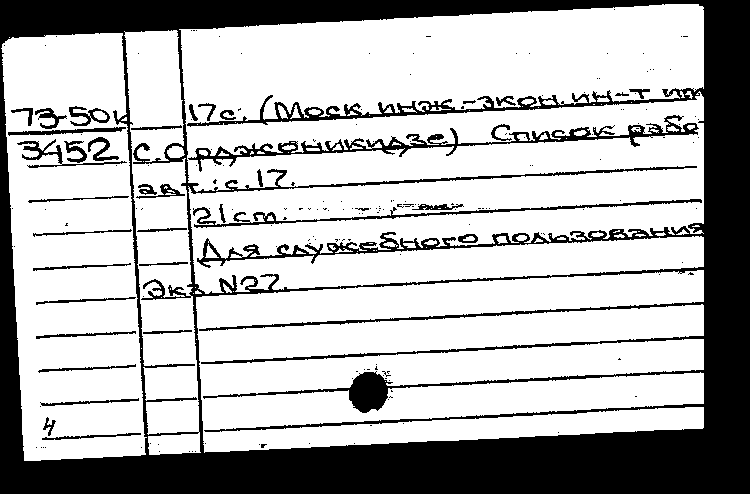 73-50к 17с. (Моск. инж.-экон. ин-т им
3452 С. Орджоникидзе) Список рабо
авт.: с. 17.
21 см.
Для служебного пользования
Экз. N27.
4